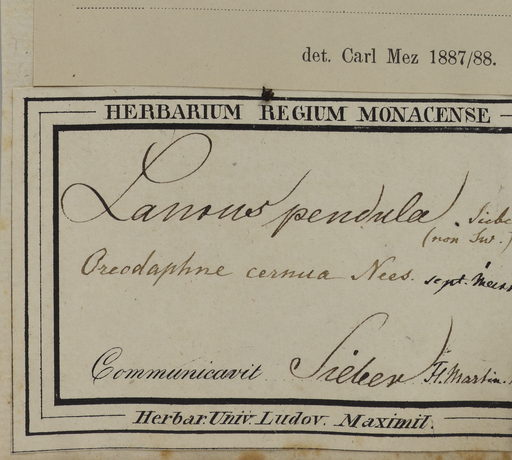 det. Carl Mez 1887/88.
HERBARIUM REGIUM MONACENSE
Laurus pendula Siebe
(non Sw.)
Oreodaphne cernua Nees. sept. Meiss
Communicavit Sieber Fl. Martin.
Herbar. Univ. Ludov. Maximil.